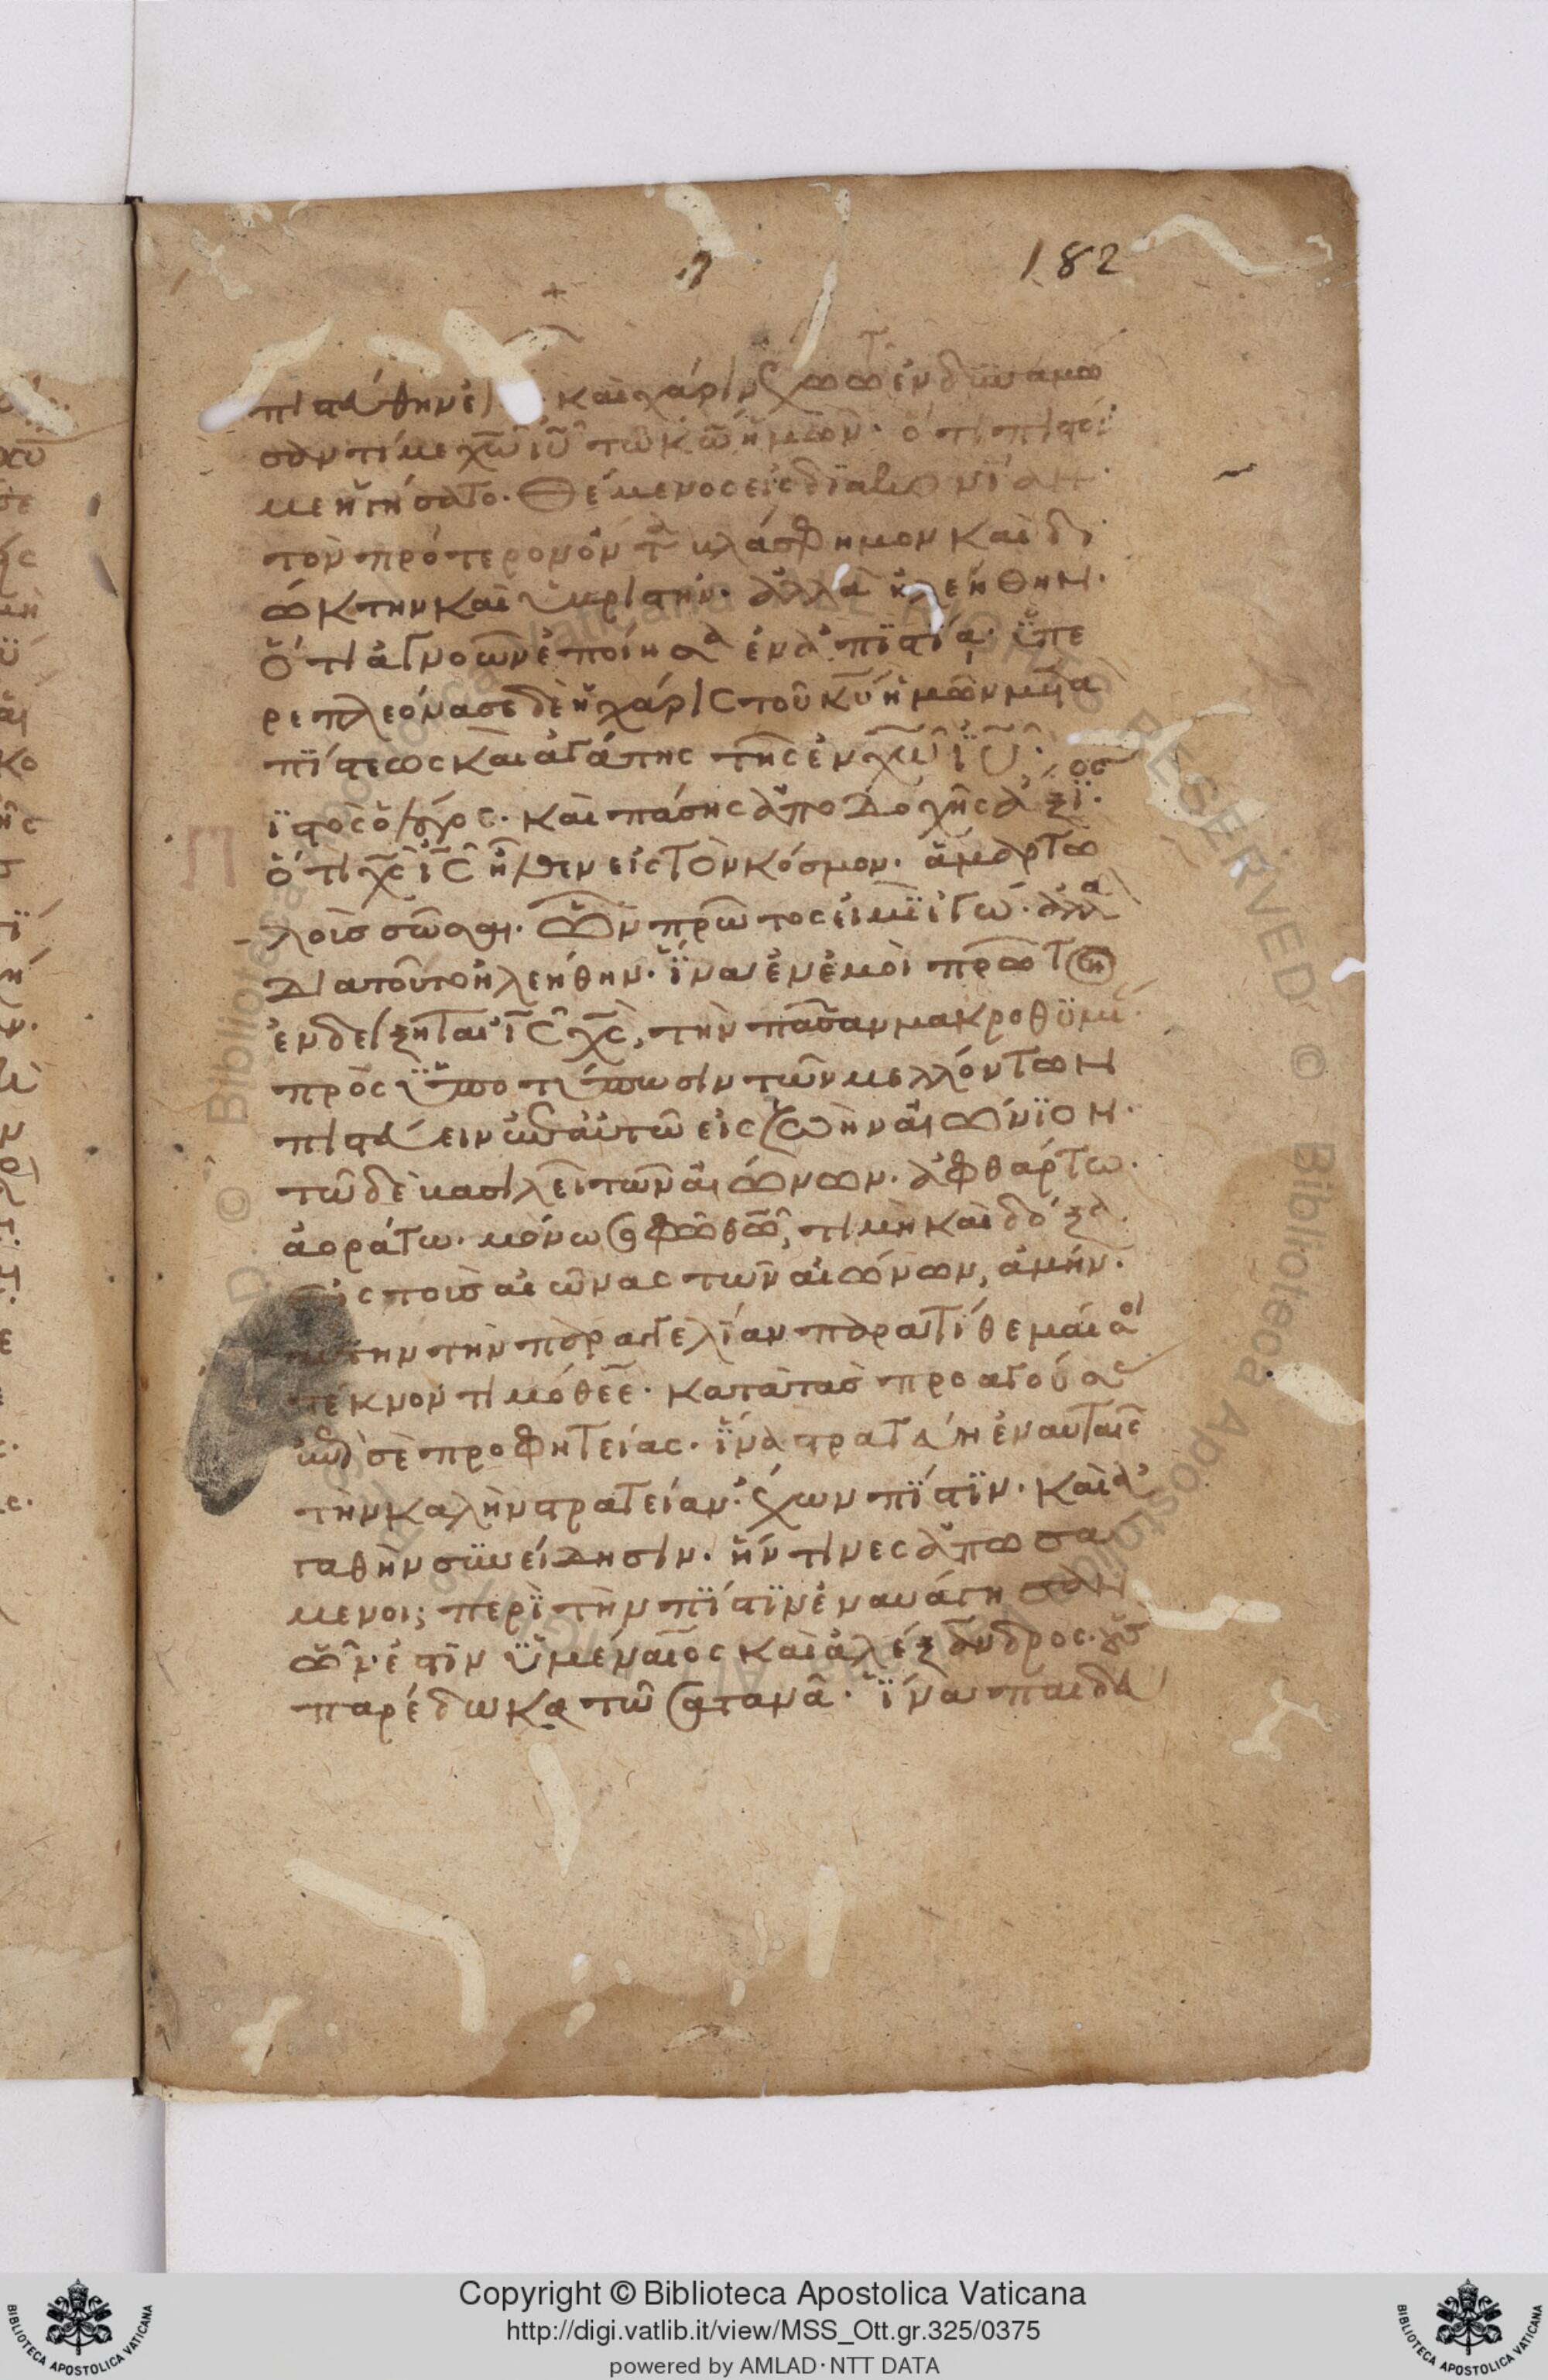 182
πιστεύθην ἐγώ καὶ χάριν ἔχω τῶ ἐνδυναμώ
σαντί με χω ιυ τῶ κω ἡμῶν· ὅτι πιστόν
με ἡγήσατο· θέμενος εἰς διακονίαν·
τὸν πρότερον ὄντα βλάσφημον καὶ δι
ώκτην καὶ ὑβριστήν· ἀλλὰ ἠλεήθην·
ὅτι ἀγνοῶν ἐποίησα ἐν ἀπιστία· ὑπε
ρεπλεόνασε δὲ ἡ χάρις τοῦ κυ ἡμῶν μετὰ
πίστεως καὶ ἀγάπης τῆς ἐν χω ιυ·
ϊστὸς ὁ λόγος· καὶ πάσης ἀποδοχῆς ἄξιος·
ὅτι χς ις ἦλθεν εἰς τὸν κόσμον· ἁμαρτω
λοὺς σῶσαι· ὧν πρῶτος εἰμὶ ἐγώ· ἀλλὰ
διατοῦτο ἠλεήθην· ἵνα ἐν ἐμοὶ πρώτω
ἐνδείξηται ις χς, τὴν πᾶσαν μακροθυμί
πρὸς ὑποτύπωσιν τῶν μελλόντων
πιστεύειν ἐπ αὐτῶ εἰς ζωὴν αἰώνιον·
τῶ δὲ βασιλεῖ τῶν αἰώνων· ἀφθάρτω·
ἀοράτω· μόνω σοφῶ θω, τιμὴ καὶ δόξα
εἰς τοὺς αἰῶνας τῶν αἰώνων, ἀμήν·
ταύτην τὴν παραγγελίαν παρατίθεμαί σοι
τέκνον τιμόθεε· κατὰ τὰς προαγούσας
ἐπὶ σὲ προφητείας· ἵνα στρατεύη ἐν αὐταῖς
τὴν καλὴν στρατείαν· ἔχων πίστιν· καὶ ἀ
γαθὴν συνείδησιν· ἥν τινες ἀπωσά
μενοι; περὶ τὴν πίστιν ἐναυάγησαν
ὧν ἐστὶν ὑμέναιος καὶ ἀλέξανδρος· οὓς
παρέδωκα τῶ σατανᾶ· ἵνα παιδευ
Copyright © Biblioteca Apostolica Vaticana
http://digi.vatlib.it/view/MSS_Ott.gr.325/0375
powered by AMLAD·NTT DATA
BIBLIOTECA APOSTOLICA VATICANA
BIBLIOTECA APOSTOLICA VATICANA